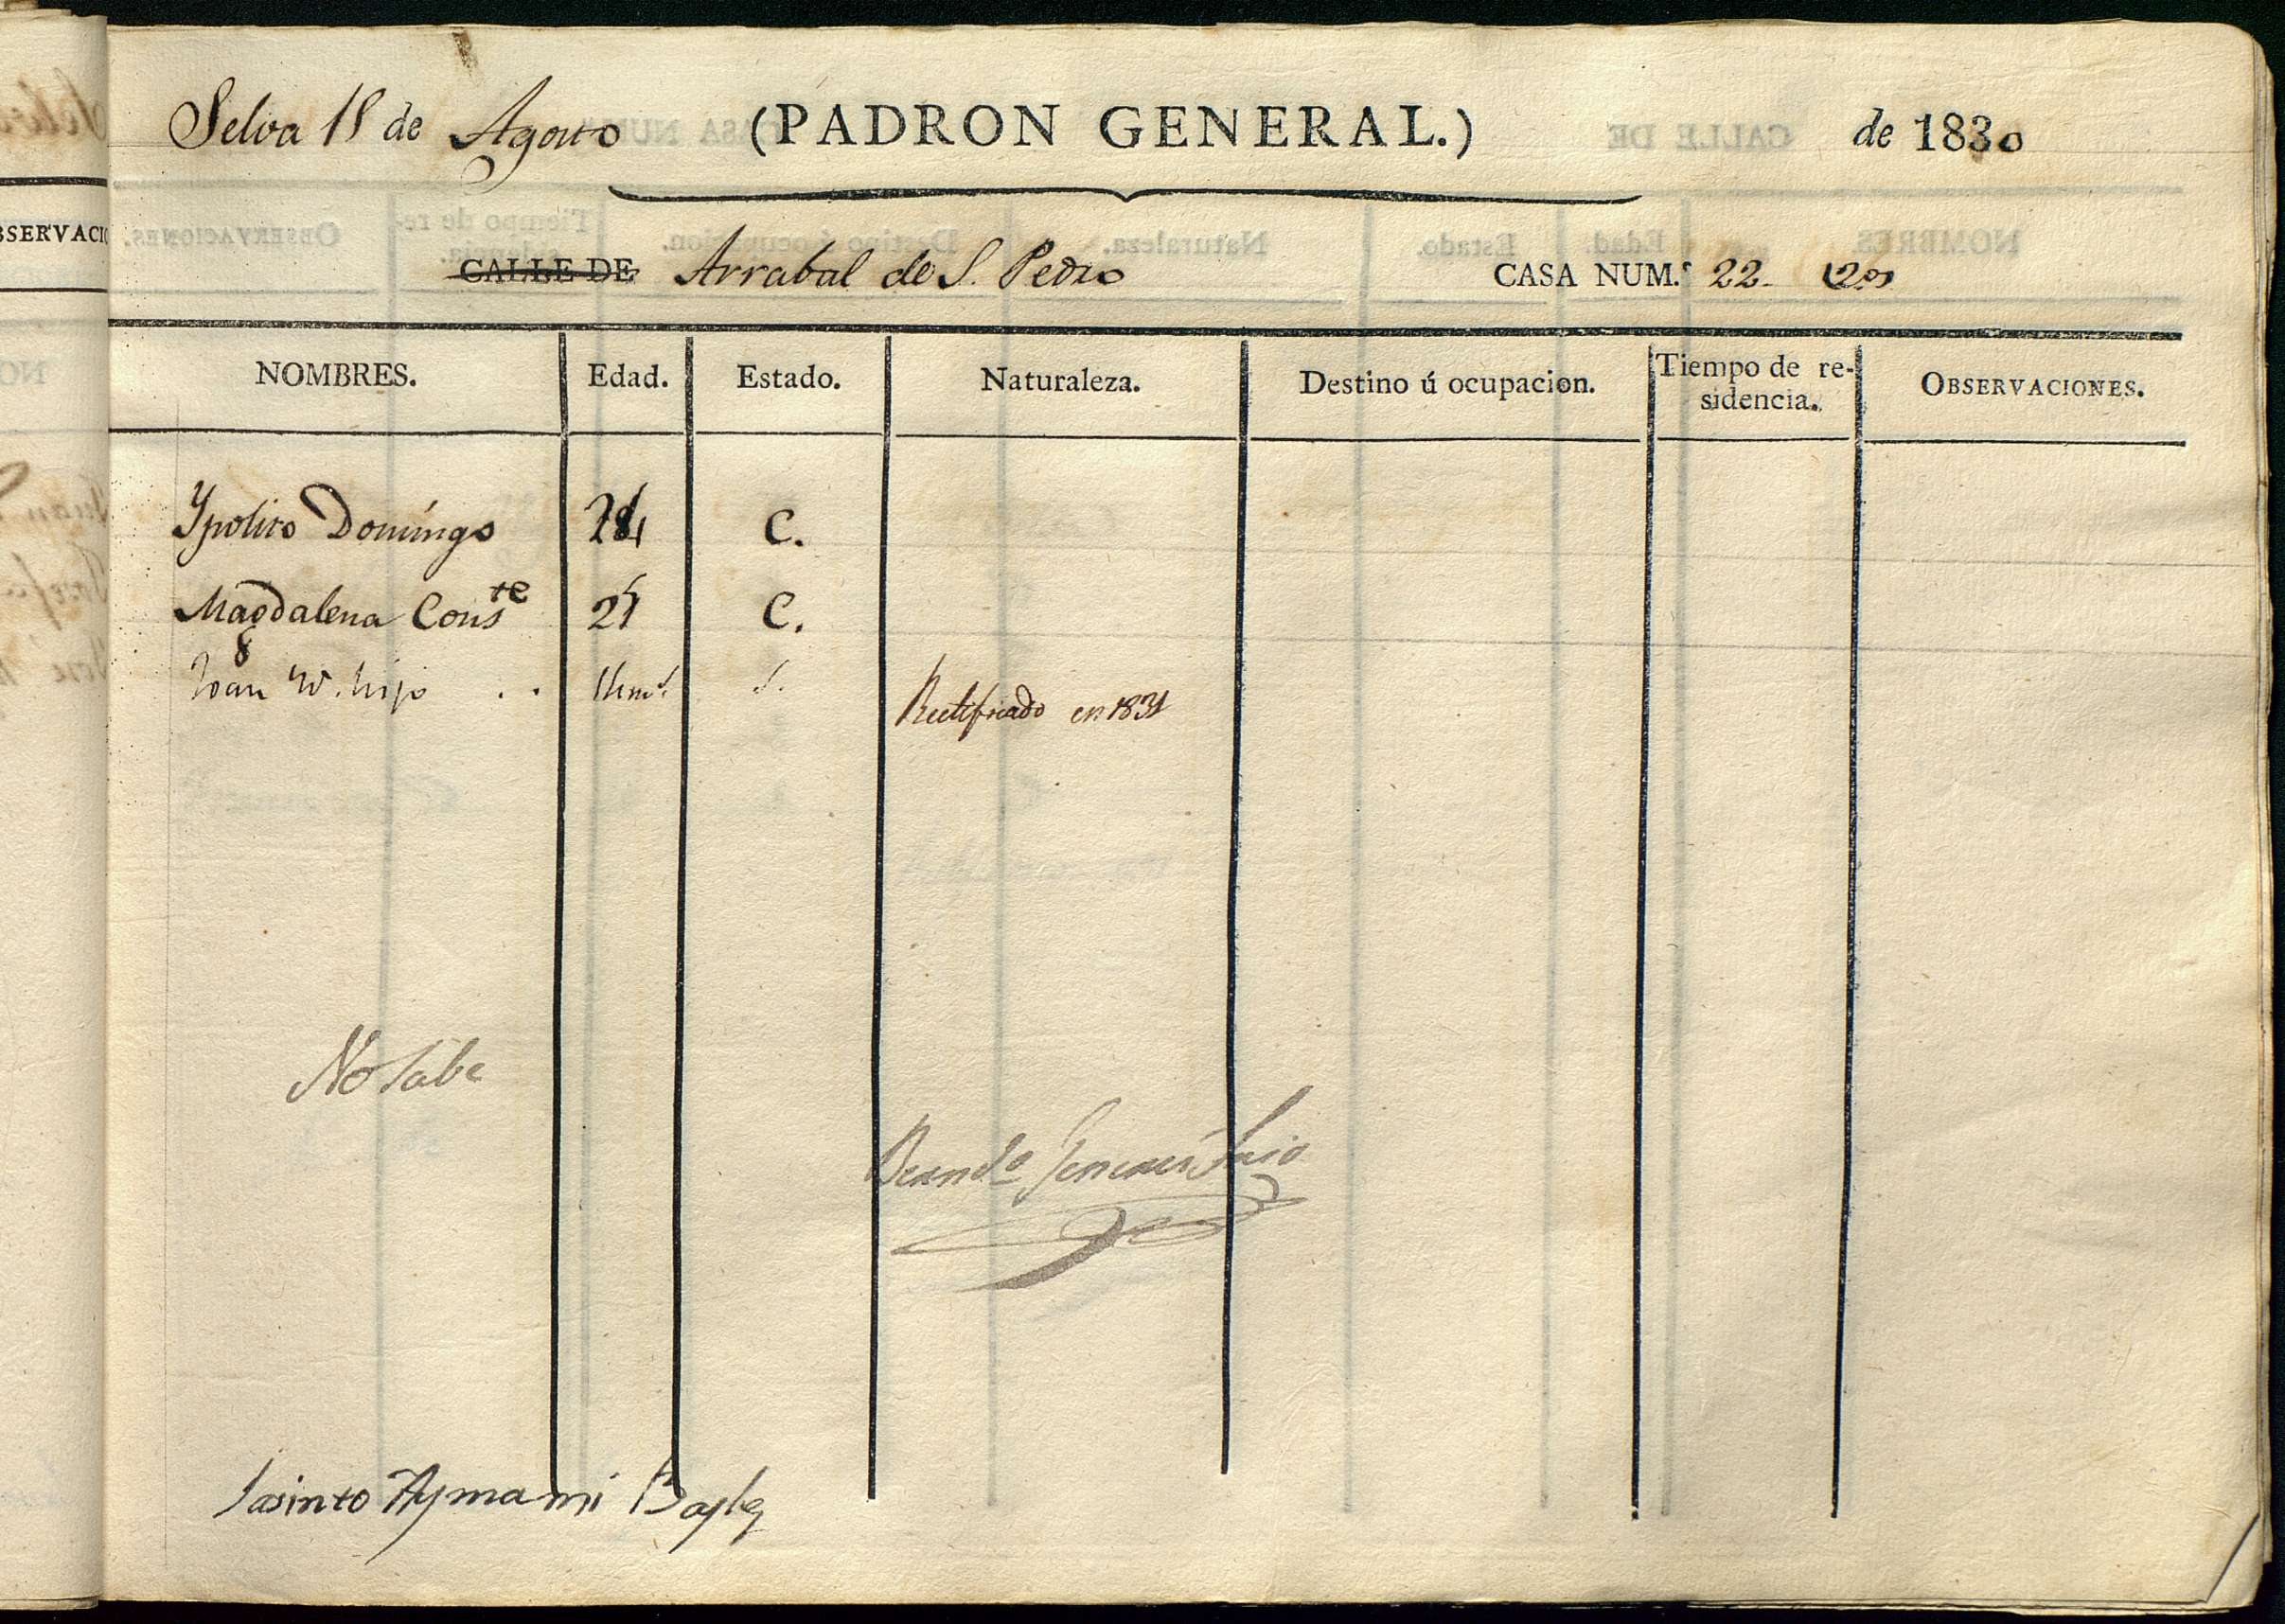 Selva 18 de Agosto (PADRON GENERAL.) de 1830
CALLE DE Arrabal de S. Pedro CASA NUM.º 22.
NOMBRES. Edad. Estado. Naturaleza. Destino ú ocupacion. Tiempo de re-
sidencia. OBSERVACIONES.
Ypolito Domingo C.
Magdalena Conste 25 C.
Juan hijo . . S.
Rectificado en 1831
No sabe
Jasinto Aymami Bayle